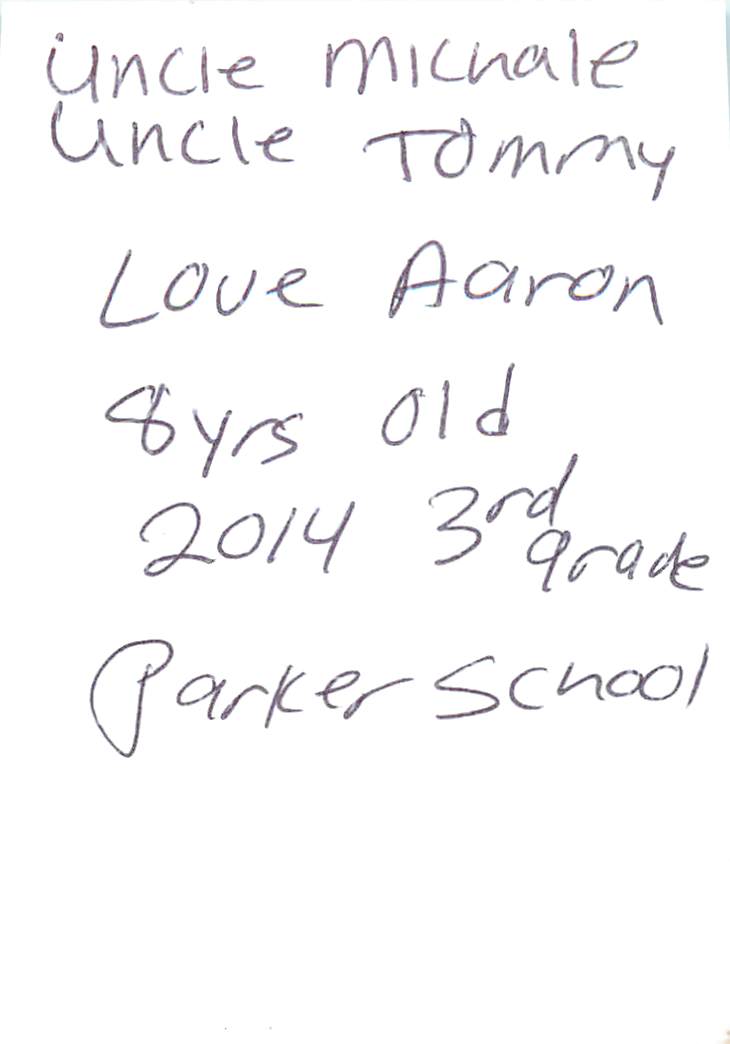 Uncle Michale
Uncle Tommy
Love Aaron
8yrs old
2014 3rd grade
Parker School